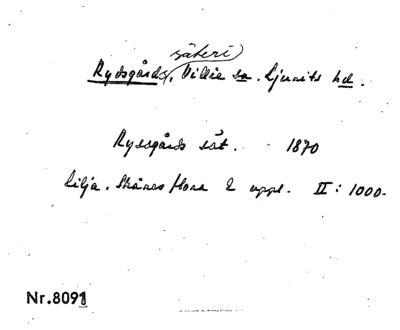 säteri
Rydsgårds, Villie sn. Ljunits hd.
Ryssgårds sät. 1870
Lilja. Skånes flora 2 uppl. II: 1000.
Nr.8091